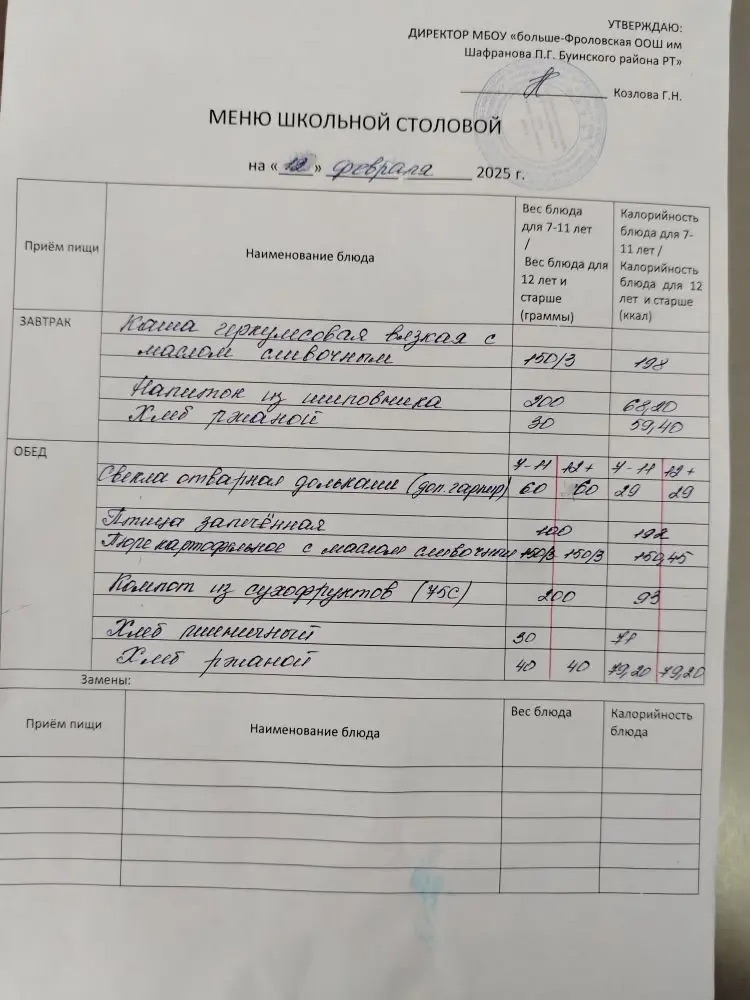 УТВЕРЖДАЮ:
ДИРЕКТОР МБОУ «больше-Фроловская ООШ им
Шафранова П.Г. Буинского района РТ»
Козлова Г.Н.
МЕНЮ ШКОЛЬНОЙ СТОЛОВОЙ
на «12» февраля 2025 г.
Приём пищи
Наименование блюда
Вес блюда
для 7-11 лет
/
Вес блюда для
12 лет и
старше
(граммы)
Калорийность
блюда для 7-
11 лет /
Калорийность
блюда для 12
лет и старше
(ккал)
ЗАВТРАК
Каша геркулесовая вязкая с
маслом сливочным 150/3 198
Напиток из шиповника 200 68,20
Хлеб ржаной 30 59,40
ОБЕД
7-11 12+ 7-11 12+
Свекла отварная дольками (доп.гарнир) 60 60 29 29
Птица запечённая 100 192
Пюре картофельное с маслом сливочным 150/3 150/3 150,45
Компот из сухофруктов (75С) 200 93
Хлеб пшеничный 30 71
Хлеб ржаной 40 40 79,20 79,20
Замены:
Приём пищи Наименование блюда Вес блюда Калорийность
блюда